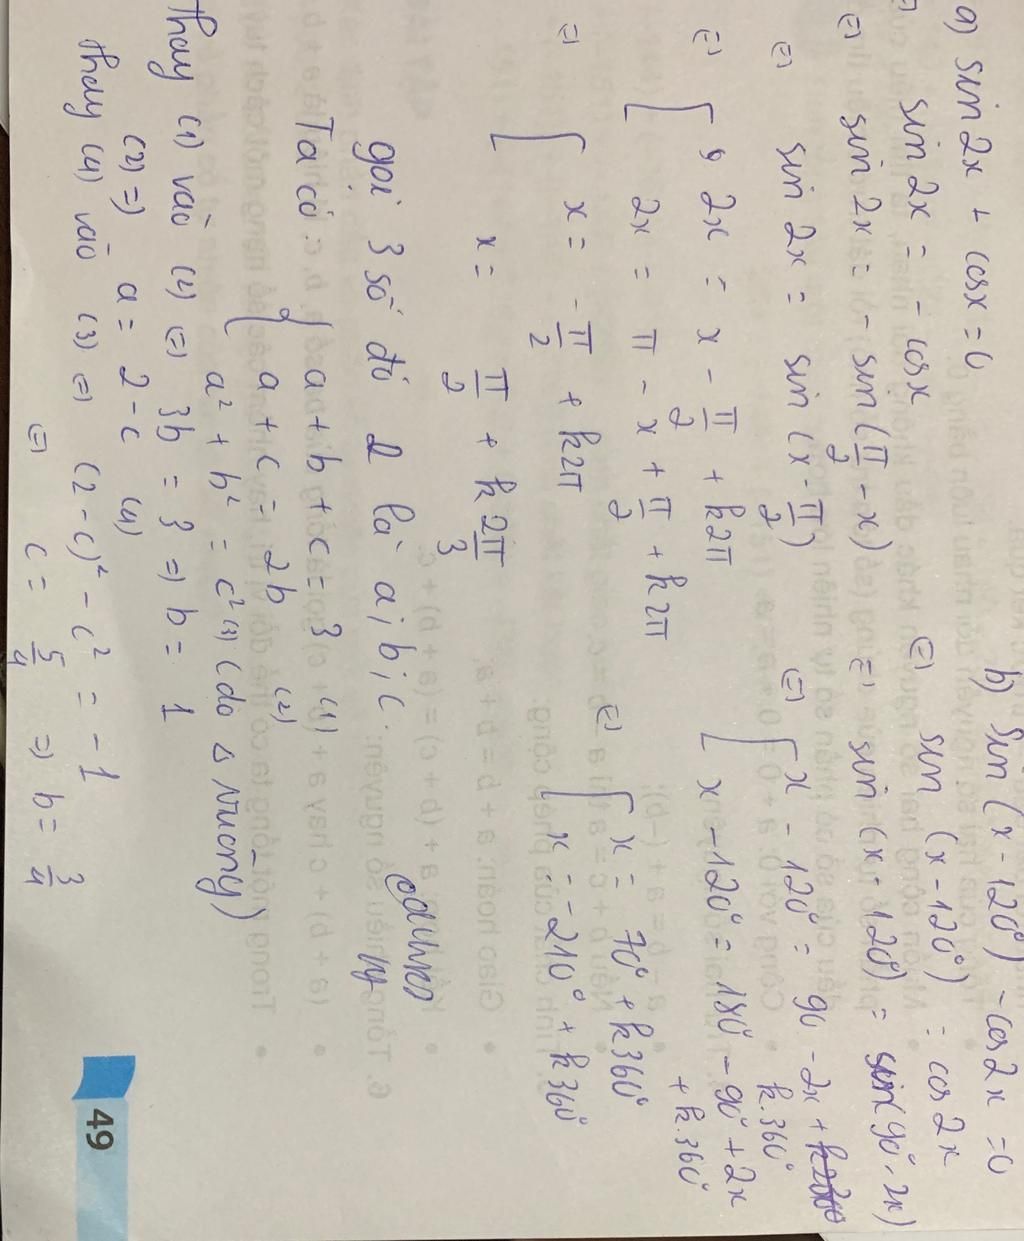 a) sin 2x + cosx = 0
⇔ sin 2x = - cosx
⇔ sin 2x = - sin (π/2 - x)
⇔ sin 2x = sin (x - π/2)
⇔ [ 2x = x - π/2 + k2π
2x = π - x + π/2 + k2π
⇔ [ x = - π/2 + k2π
x = π/2 + k 2π/3
b) sin (x - 120°) - cos 2x = 0
⇔ sin (x - 120°) = cos 2x
⇔ sin (x - 120°) = sin (90° - 2x)
⇔ [ x - 120° = 90 - 2x + k.360°
x - 120° = 180° - 90° + 2x + k.360°
⇔ [ x = 70° + k360°
x = - 210° + k360°
gọi 3 số đó là a, b, c.
Ta có { a + b + c = 3 (1)
a + c = 2b (2)
a² + b² = c² (3) (do Δ vuông)
thay (1) vào (2) ⇔ 3b = 3 ⇒ b = 1
(2) ⇒ a = 2 - c (4)
thay (4) vào (3) ⇔ (2 - c)² - c² = - 1
⇔ c = 5/4 ⇒ b = 3/4
49